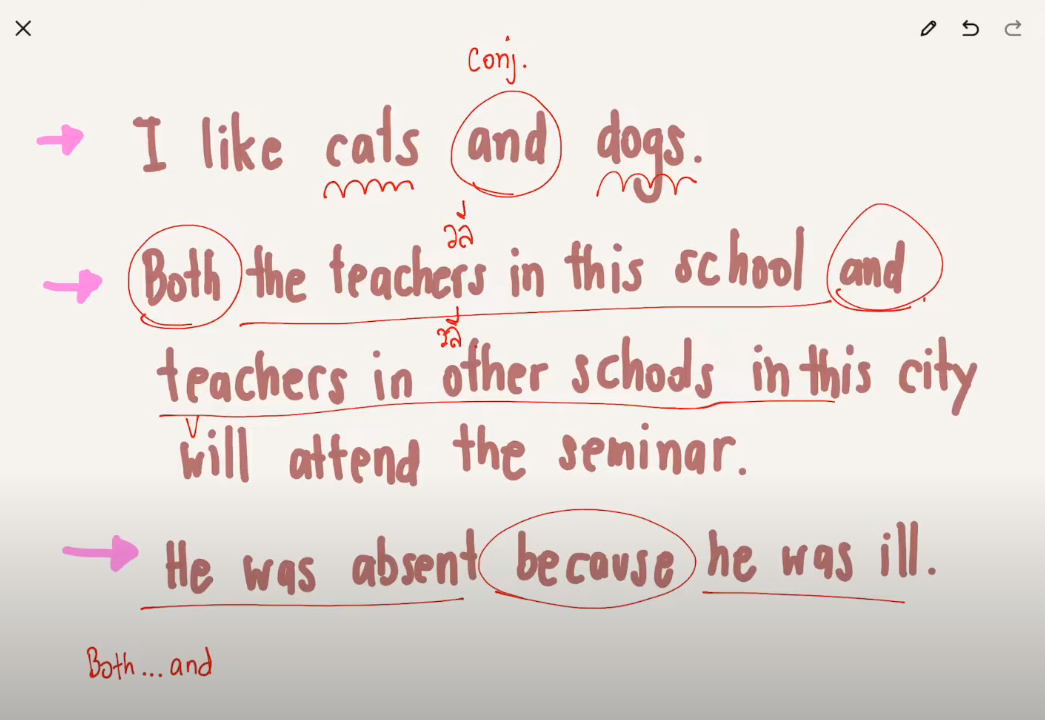 Conj.
I like cats and dogs.
วลี
Both the teachers in this school and
วลี
teachers in other schools in this city
V
will attend the seminar.
He was absent because he was ill.
Both...and